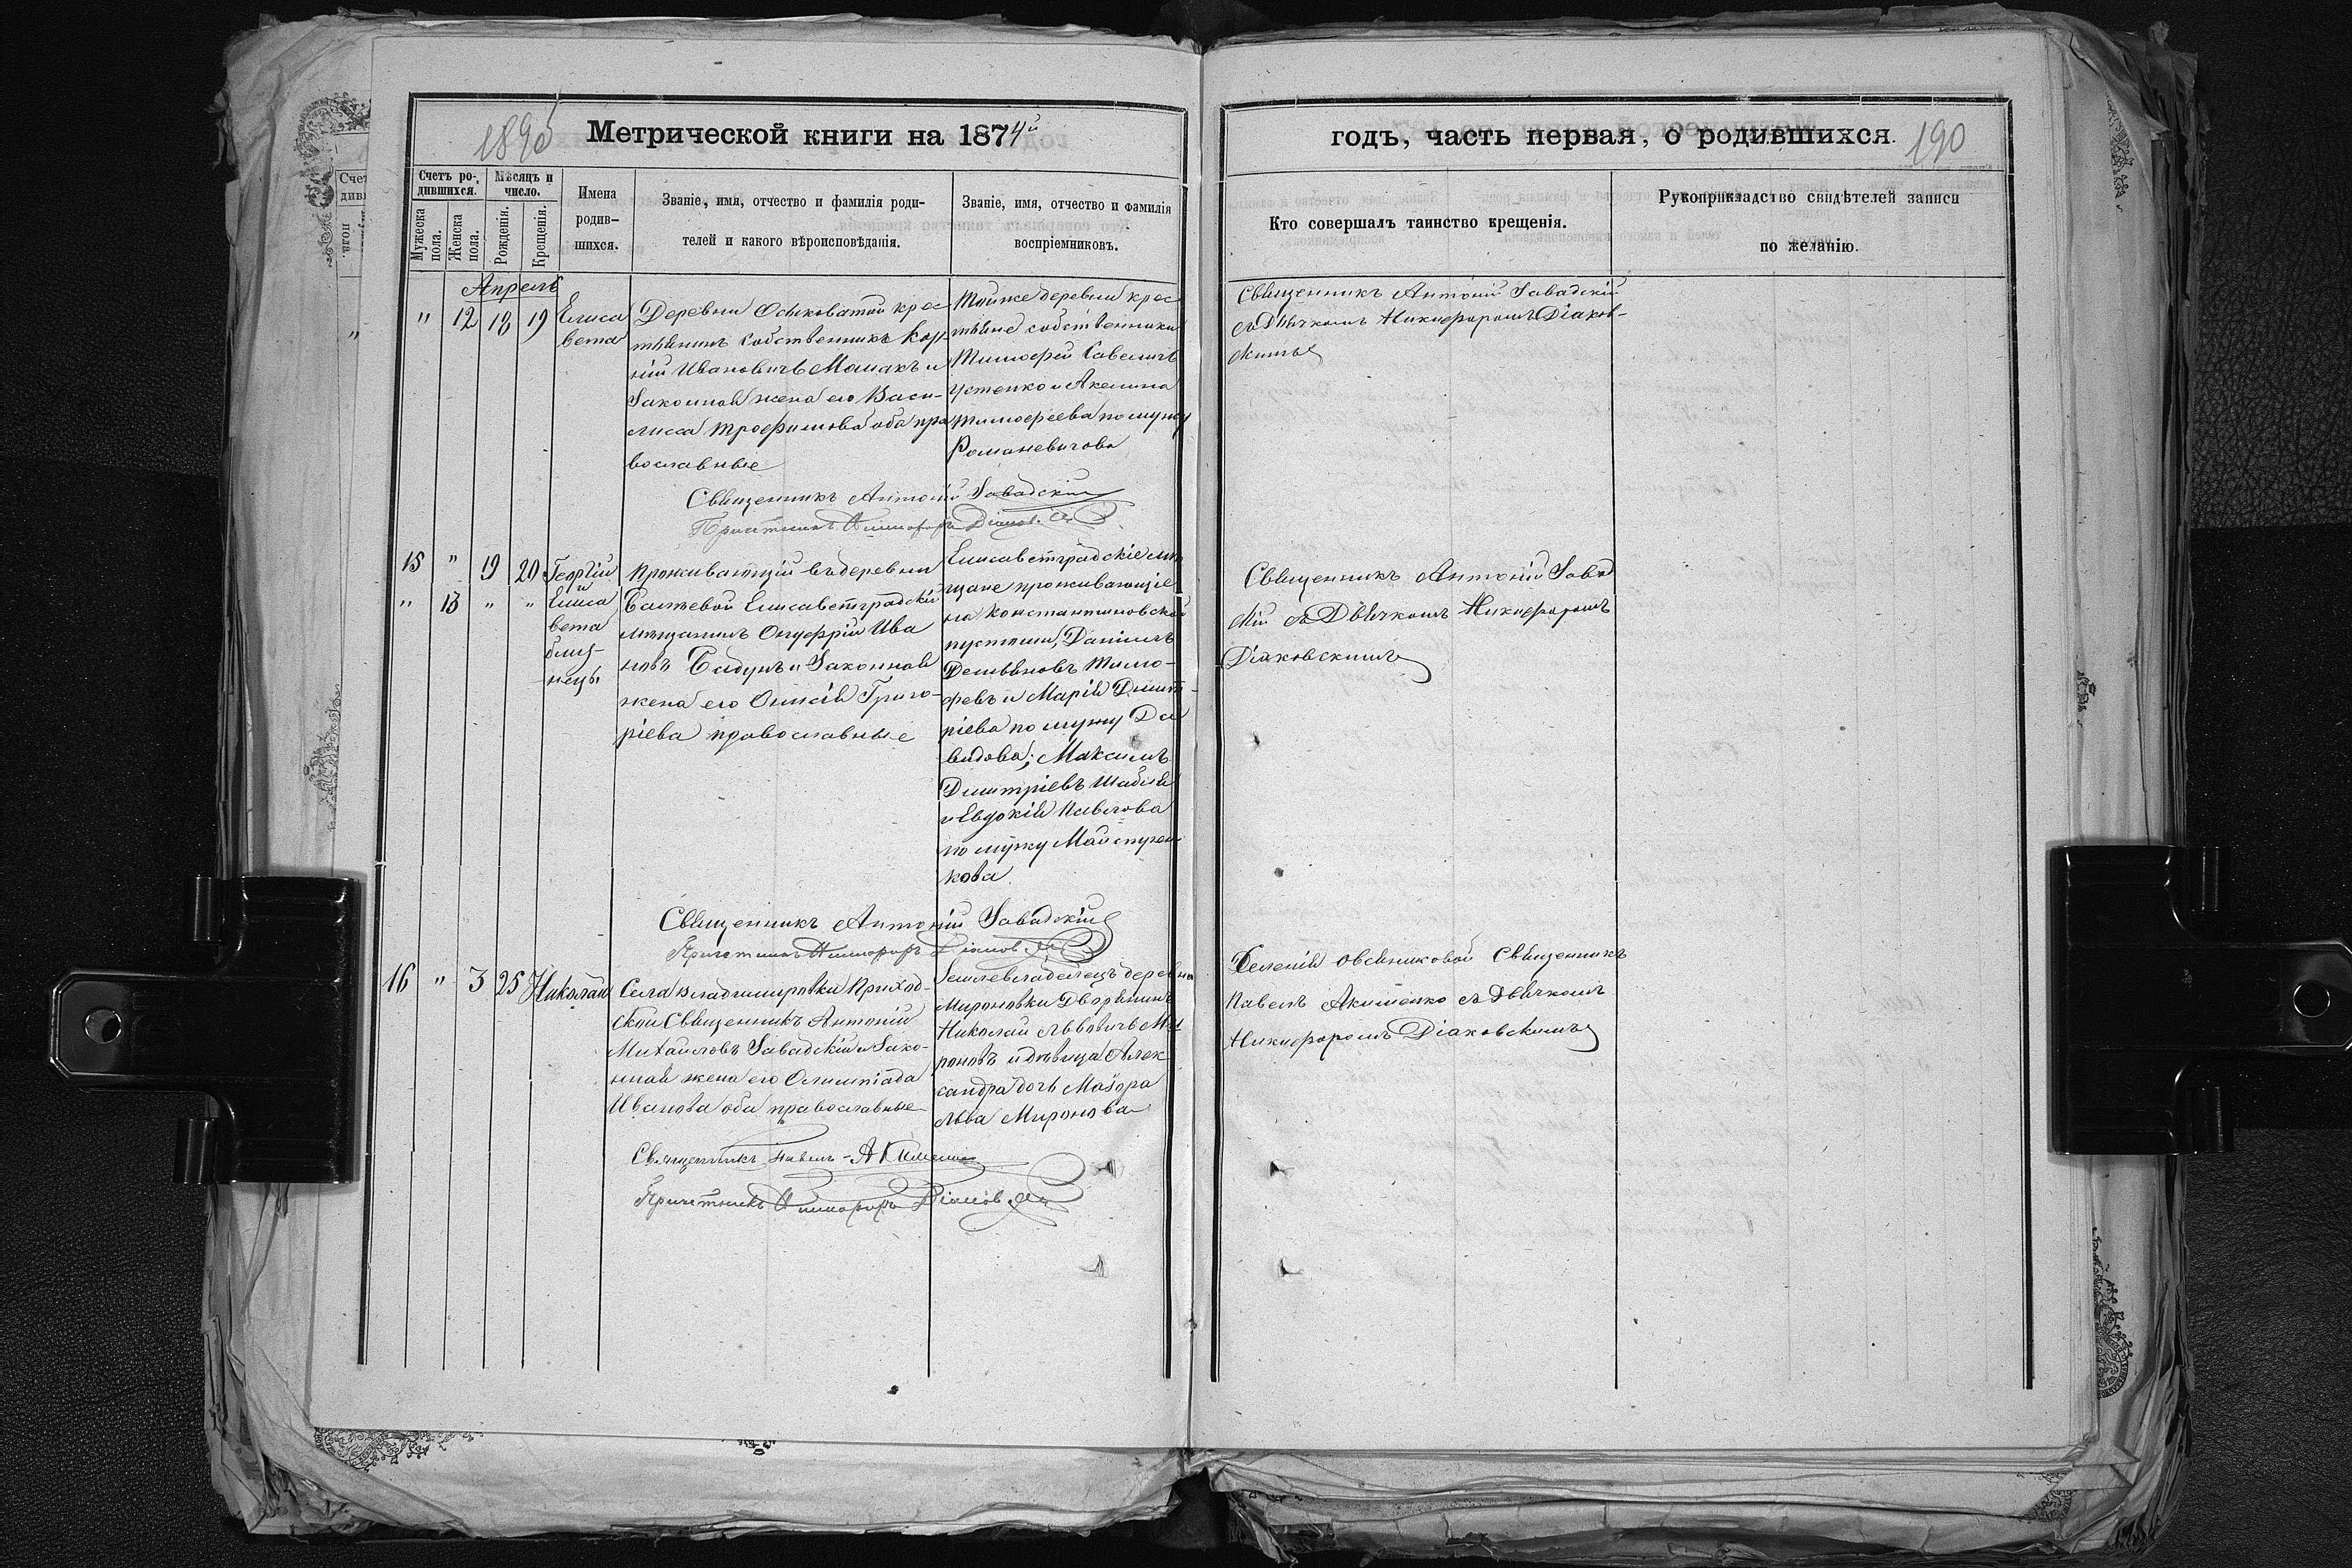 189об
Метрической книги на 1874й
годъ, часть первая, о родившихся.
190
Счетъ родившихся.
Мужеска пола.
Женска пола.
Мѣсяцъ и число.
Рожденія.
Крещенія.
Имена
родив-
шихся.
Званіе, имя, отчество и фамилія роди-
телей и какого вѣроисповѣданія.
Званіе, имя, отчество и фамилія
воспріемниковъ.
Кто совершалъ таинство крещенія.
Рукоприкладство свидѣтелей записи
по желанію.
Апрель
" 12 18 19
Елиса
вета
Деревни Осиковатой крес
тьянинъ собственникъ Кор-
ній Ивановичъ и
Законная жена его Васи-
лисса Трофимова оба пра
вославные
Тойже деревни крес
тьяне собственники
Тимофей Савеличъ
Устенко и Акелина
Тимофеева по мужу
Романевичова
Священникъ Антоній Завадскій
съ Дьячкомъ Никифоромъ Діаков-
скимъ
Священникъ Антоній Завадскій
Причетникъ Никифоръ
15 " 19 20
" 13 " "
Георгій
и
Елиса
вета
близ-
нецы
Проживающій въ деревни
Елисаветградскій
мѣщанинъ Онуфрій Ива
новъ и Законная
жена его Григо-
ріева православные
Елисаветградскіе мѣ
щане проживающіе
на Константиновской
пустоши, Даніилъ
Демьяновъ Тимо-
фѣевъ и Марія Димит-
ріева по мужу Да
видова; Максимъ
Димитріевъ
и Евдокія Павлова
по мужу Майстрен
кова
Священникъ Антоній Завад
скій съ Дьячкомъ Никифоромъ
Діаковскимъ
Священникъ Антоній Завадскій
Причетникъ Никифоръ
16 " 3 25
Николай
Села Владимировки Приход-
ской Священникъ Антоній
Михайловъ Завадскій и Зако-
нная жена его Олимпіада
Иванова оба православные
Землевладелецъ деревни
Мироновки Дворянинъ
Николай Львовичъ Ми
роновъ и дѣвица Алек
сандра дочь Маіора
Льва Миронова
Селенія Овсяниковой Священникъ
Павелъ Акименко съ Дьячкомъ
Никифоромъ Діаковскимъ
Священникъ Павелъ Акименко
Причетникъ Никифоръ